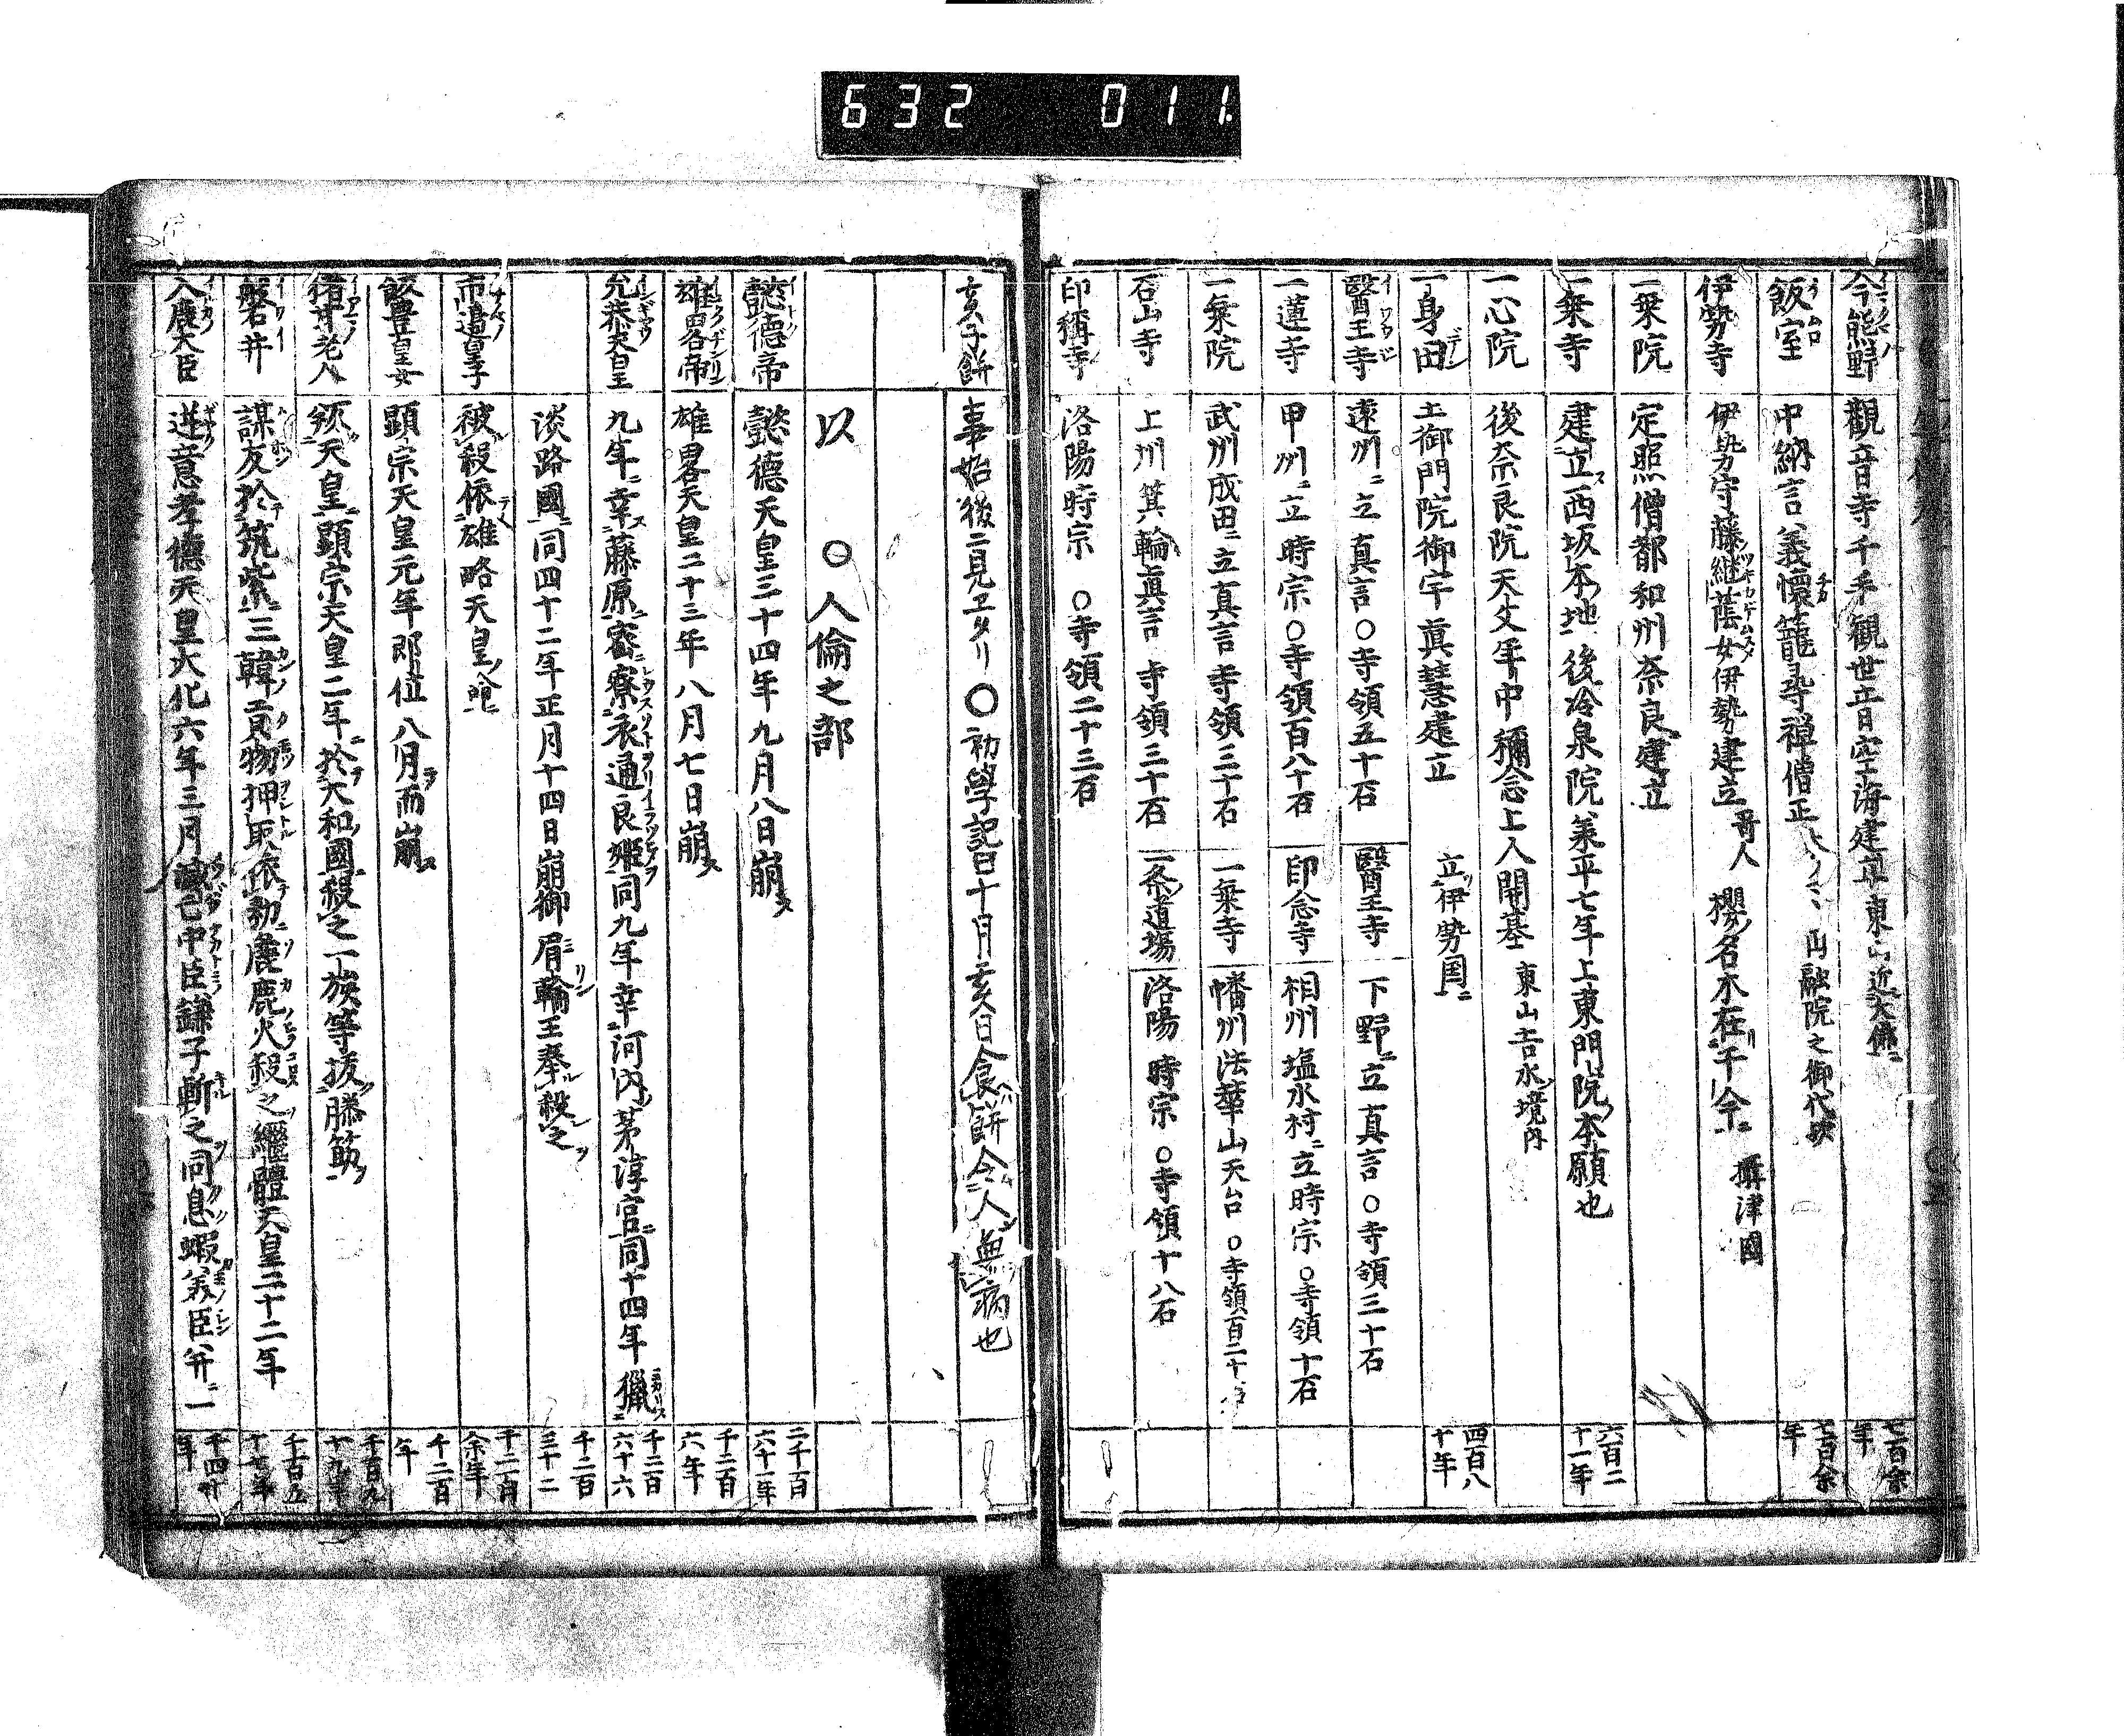 632 011
今熊野 觀音寺千手観世音空海建立東山近大佛ニ 七百余年
飯室 中納言義懷籠尋禅僧正 山融院之御代 七百余年
伊勢寺 伊勢守藤継蔭女伊勢建立 哥人 櫻名木在千今ニ 攝津國
一乗院 定照僧都和州奈良建立
一乗寺 建立西坂本地 後冷泉院 平七年上東門院本願也 六百二十一年
一心院 後奈良院天文年中彌念上人開基 東山吉水境内
一身田 土御門院御宇真慧建立 立伊勢国ニ 四百八十年
醫王寺 遠州ニ立真言○寺領五十石 醫王寺 下野ニ立真言○寺領三十石
一蓮寺 甲州ニ立時宗○寺領百八十石 印念寺 相州塩水村ニ立時宗○寺領十石
一乗院 武州成田ニ立真言寺領三十石 一乗寺 幡州法華山天台○寺領百二十石
石山寺 上州箕輪真言寺領三十石 一条道場 洛陽時宗○寺領十八石
印稱寺 洛陽時宗○寺領二十三石
亥子餅 事始後ニ見エタリ○初學記曰十月亥日食餅令人無病也
以 ○人倫之部
懿德帝 懿德天皇三十四年九月八日崩ス 二千百六十一年
雄畧帝 雄畧天皇二十三年八月七日崩ス 千二百六年
允恭天皇 九年ニ幸ス藤原ニ密寮衣通良姫同九年幸河内茅淳宮ニ同十四年獵ニ 千二百六十六
淡路國ニ同四十二年正月十四日崩御 眉輪王奉殺之 千二百三十二
市邉皇子 被殺依雄略天皇ノ命ニ 千二百余年
飯豊皇女 顕宗天皇元年即位八月而崩 千二百年
猪甘老人 顕宗天皇二年於大和國殺之一族等抜膝筋 千百九十九年
磐井 謀友於筑紫三韓貢物押取依勅麁鹿火殺之繼體天皇二十二年 千百五十七年
入鹿大臣 逆意孝德天皇大化六年三月 中臣鎌子斬之同息蝦夷臣并ニ一 千四十年